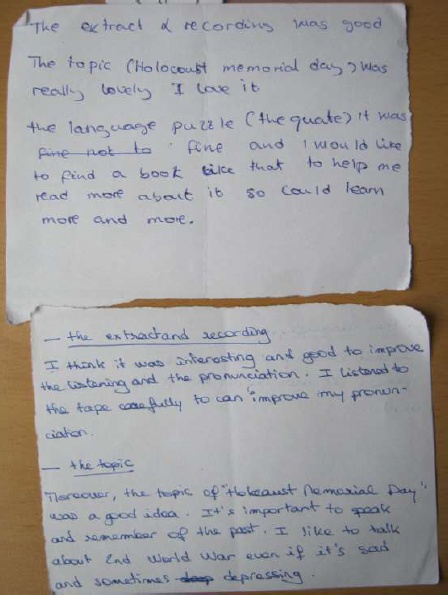 The extract & recording was good
The topic (Holocaust memorial day) was
really lovely I love it
the language puzzle (the quate) it was
fine not to fine and I would like
to find a book like that to help me
read more about it so could learn
more and more.
— the extract and recording
I think it was interesting and good to improve
the listening and the pronunciation. I listened to
the tape carefully to can improve my pronun-
ciation.
— the topic
Moreover, the topic of "Holocaust Memorial Day"
was a good idea. It's important to speak
and remember of the past. I like to talk
about 2nd World War even if it's sad
and sometimes depressing.